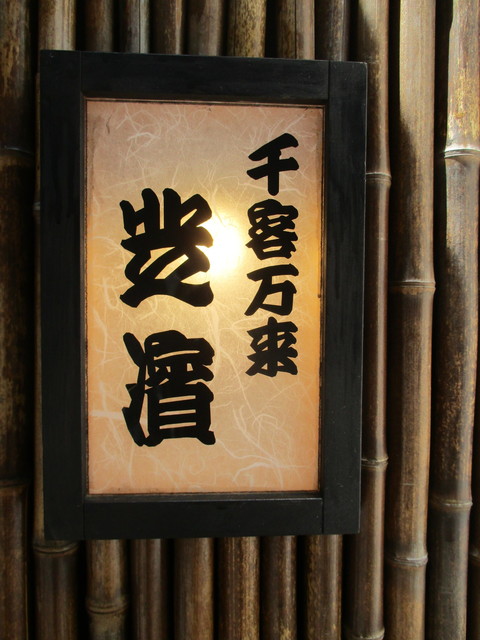 千客万来
芝濱